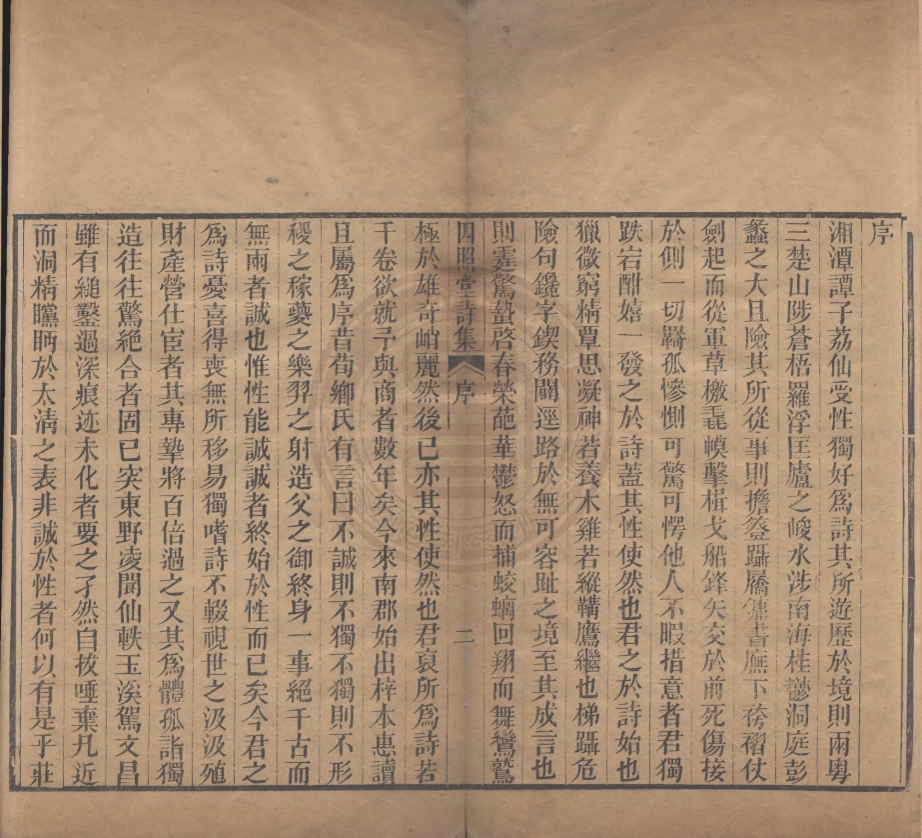 序
湘潭譚子荔仙受性獨好爲詩其所遊歷於境則兩粤
三楚山陟蒼梧羅浮匡廬之峻水涉南海桂鬱洞庭彭
蠡之大且險其所從事則擔簦躡屩傭書廡下袴褶仗
劍起而從軍草檄毳幙擊楫戈船鋒矢交於前死傷接
於側一切羇孤慘惻可驚可愕他人不暇措意者君獨
跌宕酣嬉一發之於詩蓋其性使然也君之於詩始也
獵微窮精覃思凝神若養木雞若縱鞲鷹繼也梯躡危
險句鑱字鍥務闢逕路於無可容趾之境至其成言也
則霆驚蟄啓春榮葩華鬱怒而捕蛟螭回翔而舞鸞鷟
四照堂詩集 序 二
極於雄奇峭麗然後已亦其性使然也君裒所爲詩若
干卷欲就予與商者數年矣今來南郡始出梓本惠讀
且屬爲序昔荀鄉氏有言曰不誠則不獨不獨則不形
稷之稼夔之樂羿之射造父之御終身一事絕千古而
無兩者誠也惟性能誠誠者終始於性而已矣今君之
爲詩憂喜得喪無所移易獨嗜詩不輟視世之汲汲殖
財產營仕宦者其專摯將百倍過之又其爲體孤詣獨
造往往驚絕合者固已突東野凌閬仙軼玉溪駕文昌
雖有縋鑿過深痕迹未化者要之孑然自拔唾棄凡近
而洞精矘眄於太清之表非誠於性者何以有是乎莊